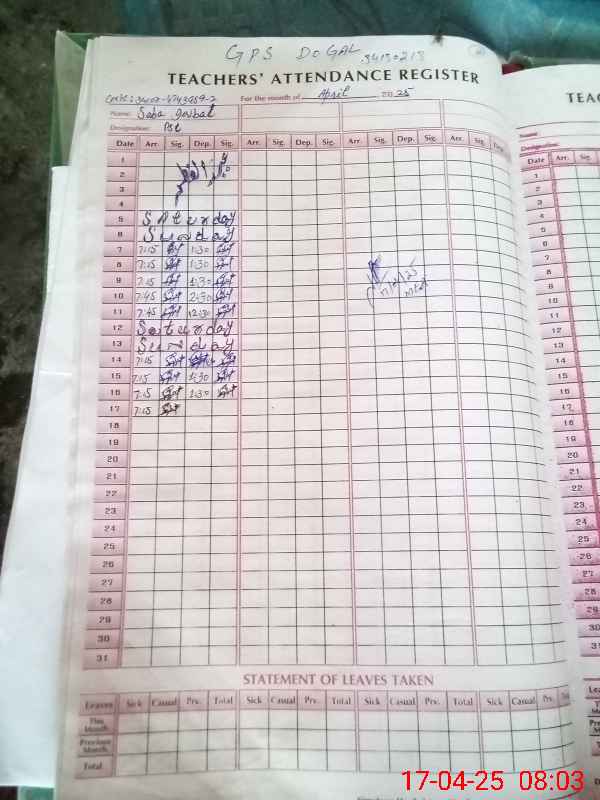 GPS DOGAL 34130213
TEACHERS' ATTENDANCE REGISTER
For the month of April 2025
Name: Saba
Designation: PST
Date Arr. Sig. Dep. Sig. Arr. Sig. Dep. Sig. Arr. Sig. Dep. Sig. Arr. Sig. Dep.
1
2
3
4
5 Saturday
6 Sunday
7 7:15 1:30
8 7:15 1:30
9 7:15 1:30
10 7:45 2:30
11 7:45 12:30
12 Saturday
13 Sunday
14 7:15
15 7:15 1:30
16 7:15 1:30
17 7:15
18
19
20
21
22
23
24
25
26
27
28
29
30
31
STATEMENT OF LEAVES TAKEN
Leaves Sick Casual Prv. Total Sick Casual Prv. Total Sick Casual Prv. Total Sick Casual Prv.
This Month
Previous Month
Total
TEAC
Name:
Designation:
Date Arr. Sig.
1
2
3
4
5
6
7
8
9
10
11
12
13
14
15
16
17
18
19
20
21
22
23
24
25
26
27
28
29
30
31
17-04-25 08:03